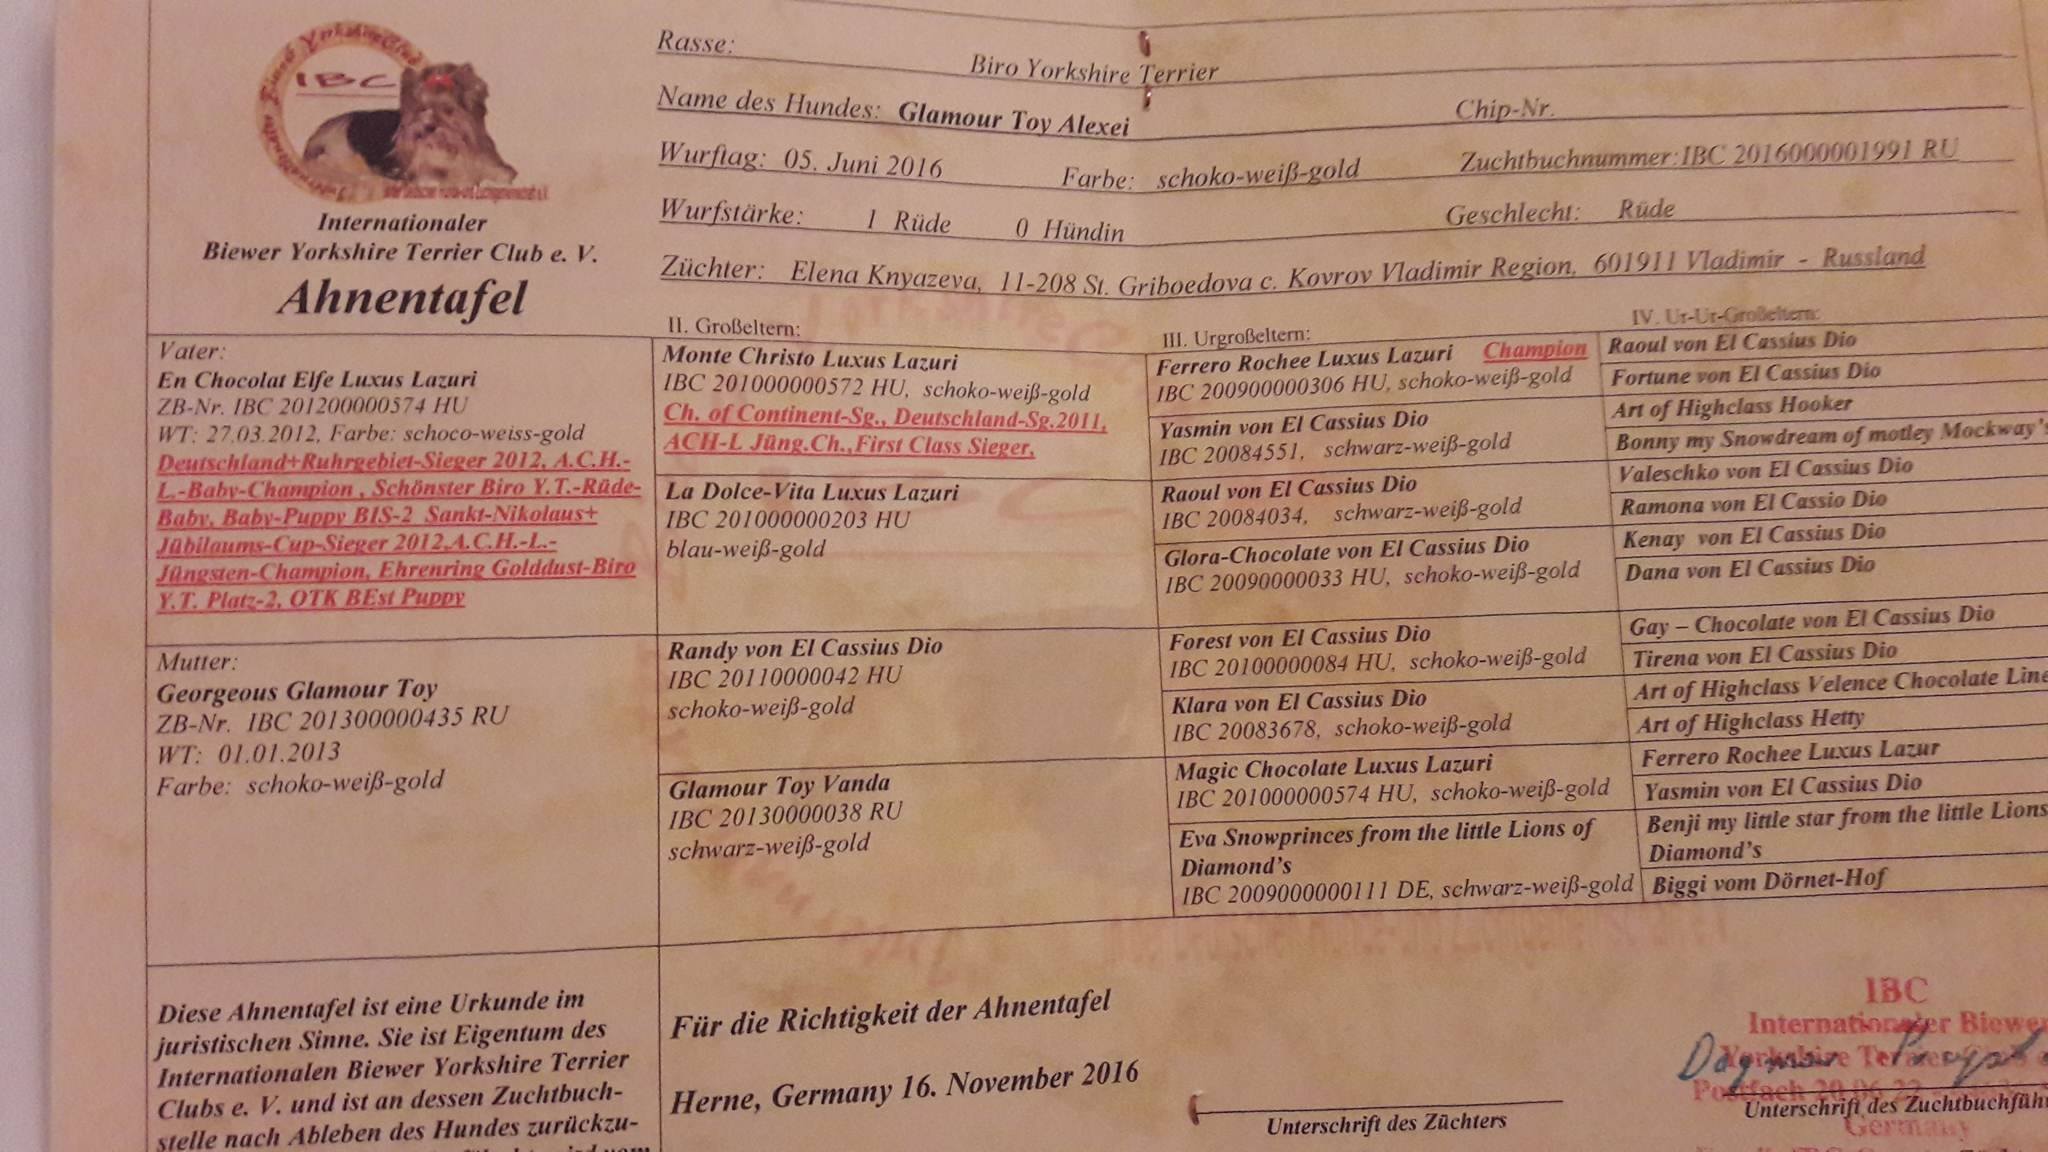 IBC
Internationaler
Biewer Yorkshire Terrier Club e. V.
Ahnentafel
Rasse: Biro Yorkshire Terrier
Name des Hundes: Glamour Toy Alexei Chip-Nr.
Wurftag: 05. Juni 2016 Farbe: schoko-weiß-gold Zuchtbuchnummer:IBC 2016000001991 RU
Wurfstärke: 1 Rüde 0 Hündin Geschlecht: Rüde
Züchter: Elena Knyazeva, 11-208 St. Griboedova c. Kovrov Vladimir Region, 601911 Vladimir - Russland
Vater:
En Chocolat Elfe Luxus Lazuri
ZB-Nr. IBC 201200000574 HU
WT: 27.03.2012, Farbe: schoco-weiss-gold
Deutschland+Ruhrgebiet-Sieger 2012, A.C.H.-
L.-Baby-Champion , Schönster Biro Y.T.-Rüde-
Baby, Baby-Puppy BIS-2 Sankt-Nikolaus+
Jübilaums-Cup-Sieger 2012,A.C.H.-L.-
Jüngsten-Champion, Ehrenring Golddust-Biro
Y.T. Platz-2, OTK BEst Puppy
Mutter:
Georgeous Glamour Toy
ZB-Nr. IBC 201300000435 RU
WT: 01.01.2013
Farbe: schoko-weiß-gold
II. Großeltern:
Monte Christo Luxus Lazuri
IBC 201000000572 HU, schoko-weiß-gold
Ch. of Continent-Sg., Deutschland-Sg.2011,
ACH-L Jüng.Ch.,First Class Sieger,
La Dolce-Vita Luxus Lazuri
IBC 201000000203 HU
blau-weiß-gold
Randy von El Cassius Dio
IBC 20110000042 HU
schoko-weiß-gold
Glamour Toy Vanda
IBC 20130000038 RU
schwarz-weiß-gold
III. Urgroßeltern:
Ferrero Rochee Luxus Lazuri Champion
IBC 200900000306 HU, schoko-weiß-gold
Yasmin von El Cassius Dio
IBC 20084551, schwarz-weiß-gold
Raoul von El Cassius Dio
IBC 20084034, schwarz-weiß-gold
Glora-Chocolate von El Cassius Dio
IBC 20090000033 HU, schoko-weiß-gold
Forest von El Cassius Dio
IBC 20100000084 HU, schoko-weiß-gold
Klara von El Cassius Dio
IBC 20083678, schoko-weiß-gold
Magic Chocolate Luxus Lazuri
IBC 201000000574 HU, schoko-weiß-gold
Eva Snowprinces from the little Lions of
Diamond's
IBC 2009000000111 DE, schwarz-weiß-gold
IV. Ur-Ur-Großeltern:
Raoul von El Cassius Dio
Fortune von El Cassius Dio
Art of Highclass Hooker
Bonny my Snowdream of motley Mockway's
Valeschko von El Cassius Dio
Ramona von El Cassio Dio
Kenay von El Cassius Dio
Dana von El Cassius Dio
Gay – Chocolate von El Cassius Dio
Tirena von El Cassius Dio
Art of Highclass Velence Chocolate Line
Art of Highclass Hetty
Ferrero Rochee Luxus Lazur
Yasmin von El Cassius Dio
Benji my little star from the little Lions
Diamond's
Biggi vom Dörnet-Hof
Diese Ahnentafel ist eine Urkunde im
juristischen Sinne. Sie ist Eigentum des
Internationalen Biewer Yorkshire Terrier
Clubs e. V. und ist an dessen Zuchtbuch-
stelle nach Ableben des Hundes zurückzu-
Für die Richtigkeit der Ahnentafel
Herne, Germany 16. November 2016
Unterschrift des Züchters
IBC
Internationaler Biewer
Yorkshire Terrier Club
Postfach 20 06 22
Dagmar
Unterschrift des Zuchtbuchfüh
Germany